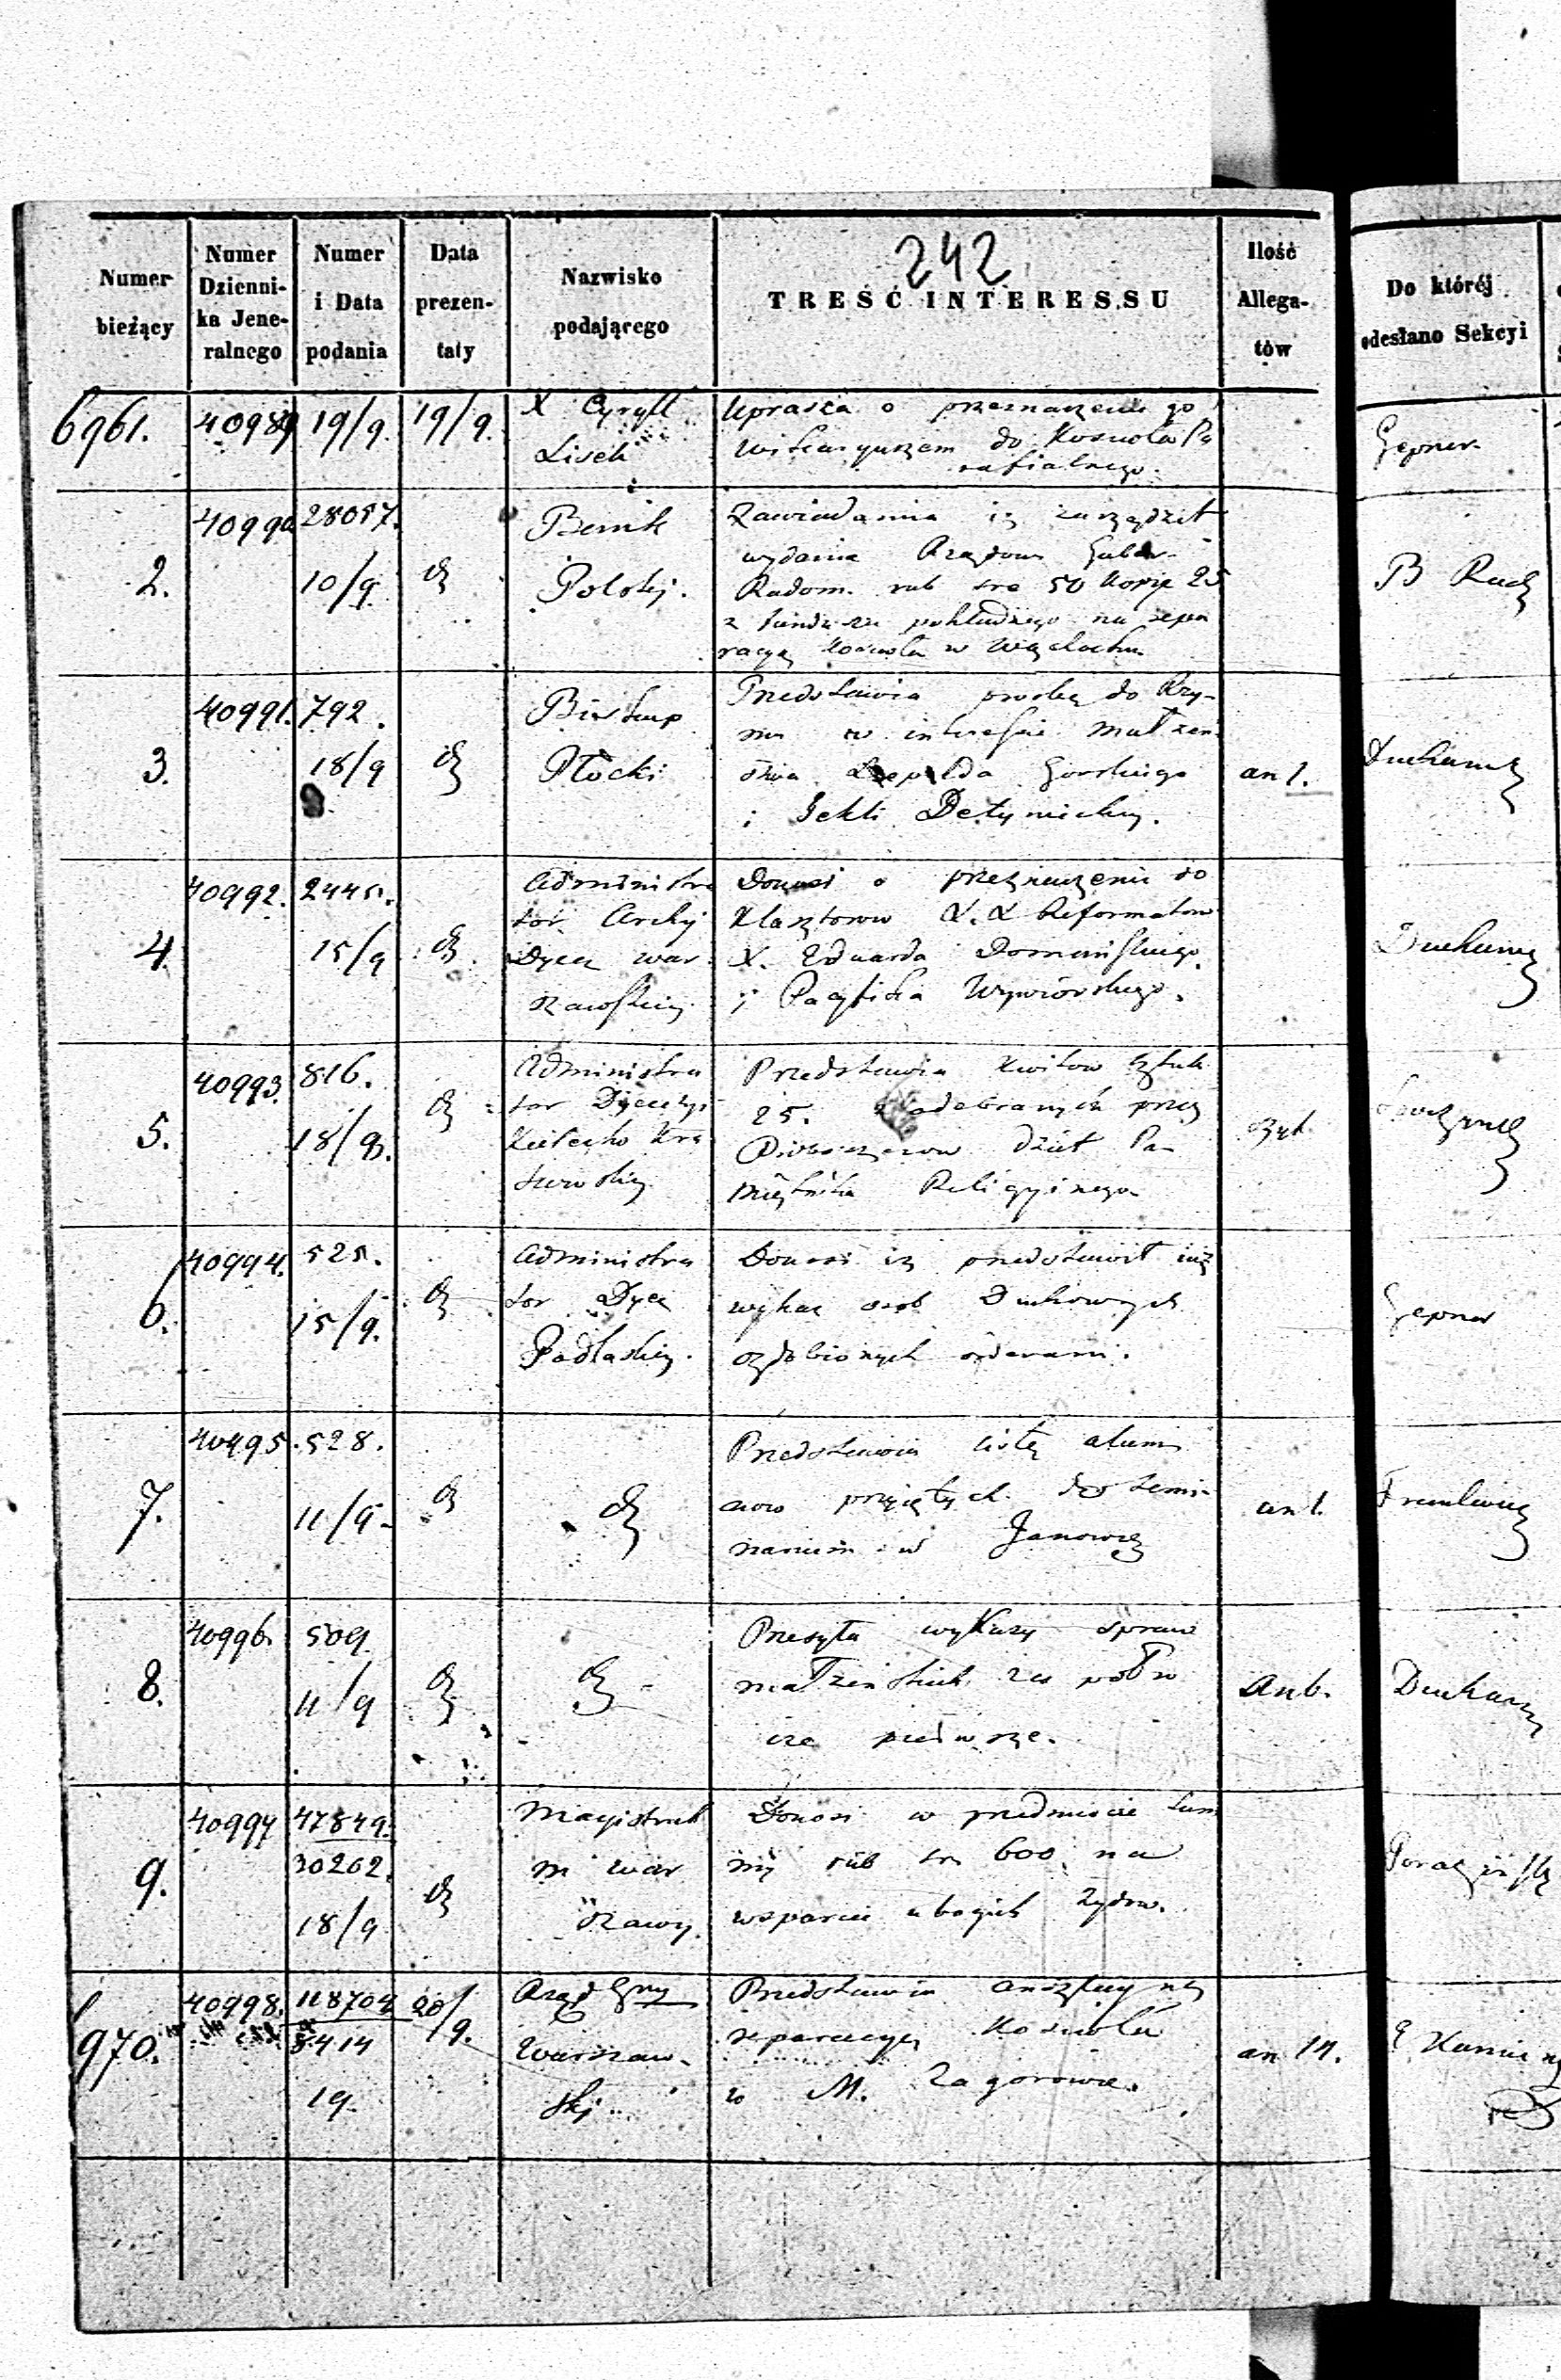 242
Numer bieżący
Numer Dzienni-ka Jene-ralnego
Numer i Data podania
Data prezen-taty
Nazwisko podającego
TREŚĆ INTERESSU
Ilość Allega-tów
Do któréj odesłano Sekcyi
6961. 40989 19/9. 19/9.
X Cyryll
Lisek
Uprasza o przeznaczenie go
wikaryuszem do Kościoła Pa
rafialnego.
Gepner
2. 40990 28057. 10/9 dt
Bank
Polski.
Zawiadamia iż zarządził
wydanie Rządowi Guber.
Radom. rub sre 50 kopie 25
z funduszu pokładnego na repa
racyę kościoła w Wąchocku
B Rach
3. 40991. 792. 18/9 dt
Biskup
Płocki
Predstawia prozbę do Rzy-
mu w interesie małżeń
stwa Leopolda Gorskiego
i Tekli
an 1.
4. 40992. 2445. 15/9 dt
Administra
tor Archy
Dyec war
szawskiej
Donosi o przeznaczeniu do
Klasztorow X.X Reformatow
X. Eduarda Domańskiego
i Pacyfika
5. 40993. 816. 18/9. dt
Administra
tor Dyecezyi
Kielecko Kra
kowskiej
Przedstawia kwitow sztuk
25. odebranych przez
dzieł Pa
miętnika Religyinego
6. 40994. 525. 15/9. dt
Administra
tor Dyec
Podlaskiej.
Donosi iż predstawił już
wykaz osob Duchownych
ozdobionych orderami.
Gepner
7. 40995. 528. 11/9. dt
dt
Predstawia listę alum
now przyjętych do Semi-
narium w Janowie
an 1.
8. 40996. 509 11/9 dt
dt
Presyła wykazy spraw
małżeńskich za puł ro
cze pierwsze.
an 6.
9. 40997 47849. 30262. 18/9 dt
Magistrat
m War
szawy
Donosi w predmiocie Sum
my rub sr. 600 na
wsparcie ubogich żydow.
970. 40998. 118704 8414 19. 20/9.
Rząd Gny
Warszaw-
ski
Predstawia anszlag na
reparacyą Kościoła
w M. Zagorowie.
an 14.